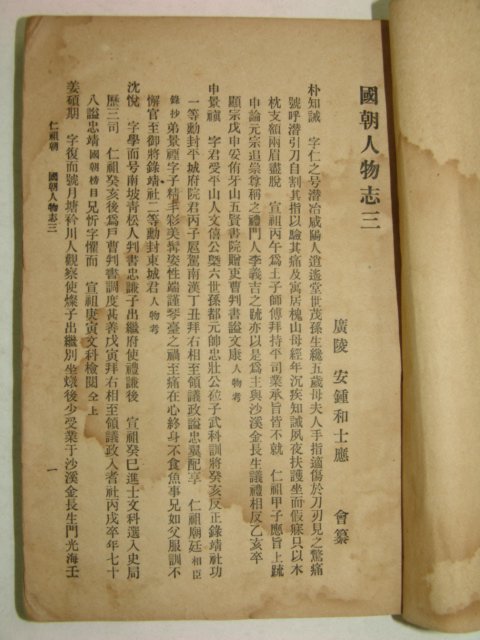 國朝人物志三
廣陵 安鍾和士應 會纂
朴知誡 字仁之号潛冶咸陽人逍遙堂世茂孫生纔五歲母夫人手指適傷於刀刃見之驚痛
號呼潛引刀自割其指以驗其痛及寓居槐山母經年沉疾知誡夙夜扶護坐而假寐只以木
枕支額兩眉盡脫 宣祖丙午爲王子師傅拜持平司業承旨皆不就 仁祖甲子應旨上䟽
申論元宗追崇尊稱之禮門人李義吉之䟽亦以是爲主與沙溪金長生議禮相反乙亥卒
顯宗戊申妥侑牙山五賢書院贈吏曹判書謚文康 人物考
申景禛 字君受平山人文僖公槩六世孫都元帥忠壯公砬子武科訓將癸亥反正錄靖社功
一等勳封平城府院君丙子扈駕南漢丁丑拜右相至領議政謚忠翼配享 仁祖廟廷 相臣
錄抄 弟景禋字子精丰彩美髯姿性端謹琴臺之禍至痛在心終身不食魚事兄如父服訓不
懈官至御將錄靖社二等勳封東城君 人物考
沈悅 字學而号南坡青松人判書忠謙子出繼府使禮謙後 宣祖癸巳進士文科選入史局
歷三司 仁祖癸亥後爲戶曹判書調度甚善戊寅拜右相至領議政入耆社丙戌卒年七十
八謚忠靖 國朝榜目 兄忻字懼而 宣祖庚寅文科檢閱 仝上
姜碩期 字復而號月塘衿川人觀察使燦子出繼別坐燉後少受業于沙溪金長生門光海壬
仁祖朝 國朝人物志三 一